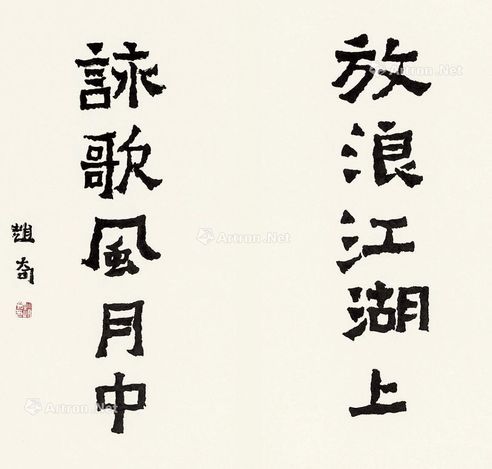 放浪江湖上
詠歌風月中
趙奇
Artron.Net
Artron.Net
Artron.Net
Artron.Net